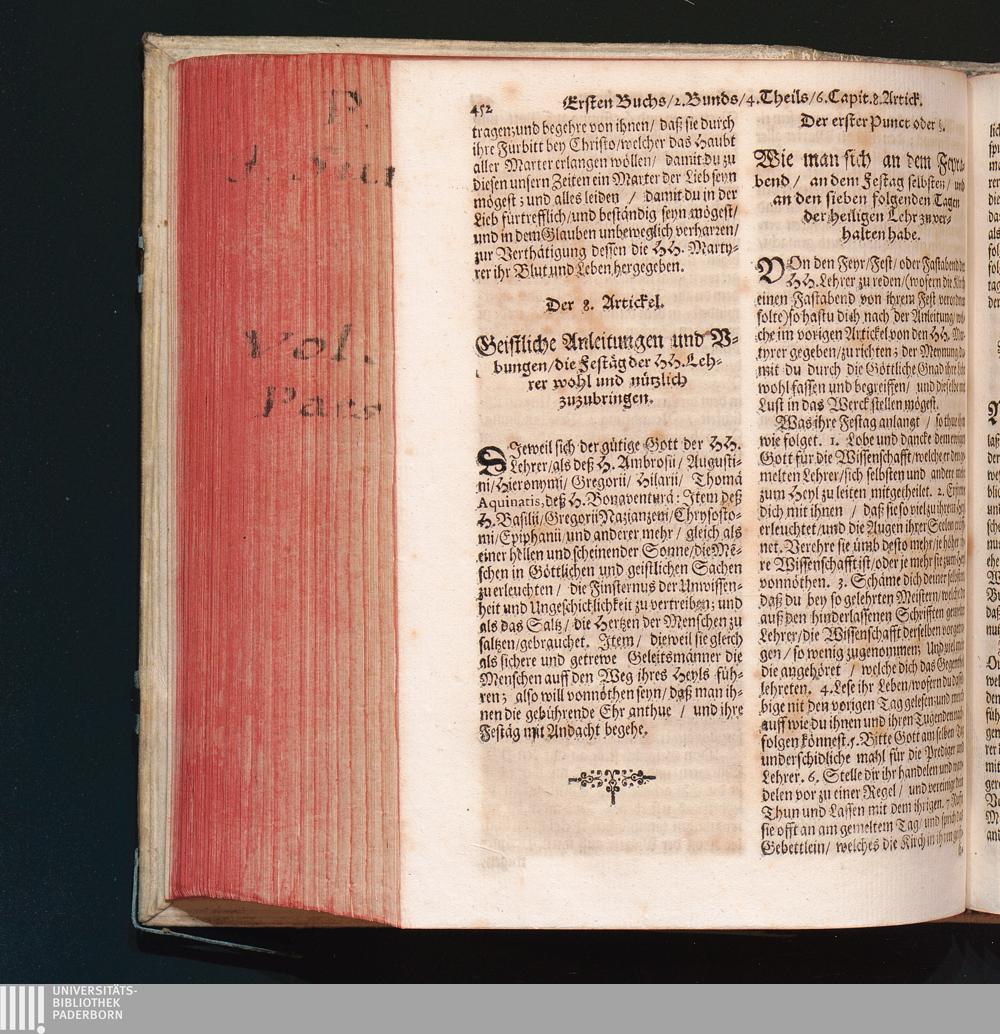 P.
vol.
Pars
452 Ersten Buchs/2. Bunds/4. Theils/6. Capit. 8. Artick.
tragen; und begehre von ihnen/ daß sie durch
ihre Fürbitt bey Christo/welcher das Haubt
aller Marter erlangen wöllen/ damit du zu
diesen unsern Zeiten ein Marter der Lieb seyn
mögest; und alles leiden / damit du in der
Lieb fürtrefflich/und beständig seyn mögest/
und in dem Glauben unbeweglich verharren/
zur Verthätigung dessen die HH. Marty-
rer ihr Blut und Leben hergegeben.
Der 8. Artickel.
Geistliche Anleitungen und V-
bungen/die Festäg der HH. Leh-
rer wohl und nützlich
zuzubringen.
DIeweil sich der gütige Gott der HH.
Lehrer/als deß H. Ambrosii/ Augusti-
ni/Hieronymi/ Gregorii/ Hilarii/ Thomä
Aquinatis, deß H. Bonaventurä: Item deß
H. Basilii/Gregorii Nazianzeni/Chrysosto-
mi/Epiphanii/und anderer mehr/ gleich als
einer hellen und scheinender Sonne/die Mẽ-
schen in Göttlichen und geistlichen Sachen
zu erleuchten/ die Finsternus der Unwissen-
heit und Ungeschicklichkeit zu vertreiben; und
als das Saltz/ die Hertzen der Menschen zu
saltzen/gebrauchet. Item/ dieweil sie gleich
als sichere und getrewe Geleitsmänner die
Menschen auff den Weg ihres Heyls füh-
ren; also will vonnöthen seyn/ daß man ih-
nen die gebührende Ehr anthue / und ihre
Festäg mit Andacht begehe.
Der erster Punct oder §.
Wie man sich an dem Feyra-
bend/ an dem Festag selbsten/ und
an den sieben folgenden Tagen
der Heiligen Lehr zu ver-
halten habe.
VOn den Feyr/Fest/ oder Fastabend der
HH. Lehrer zu reden/(wofern die Kirch
einen Fastabend von ihrem Fest verordnen
solte) so hastu dich nach der Anleitung/ wel-
che im vorigen Artickel von den HH. Mar-
tyrer gegeben/zu richten; der Mennung/da
mit du durch die Göttliche Gnad ihre Lehr
wohl fassen und begreiffen/ und dieselbe mit
Lust in das Werck stellen mögest.
Was ihre Festag anlangt / so thue ihm
wie folget. 1. Lobe und dancke dem ewigen
Gott für die Wissenschafft/welche er den ge-
melten Lehrer/sich selbsten und andere mehr
zum Heyl zu leiten mitgetheilet. 2. Erfrewe
dich mit ihnen / daß sie so viel zu ihrem Heyl
erleuchtet/und die Augen ihrer Seelen eröff-
net. Verehre sie umb desto mehr/je höher ih-
re Wissenschafft ist/oder je mehr sie zum Heyl
vonnöthen. 3. Schäme dich deiner selbsten
daß du bey so gelehrten Meistern/welche dir
auß den hinderlassenen Schrifften gewesen
Lehrer/die Wissenschafft derselben vorgetra-
gen/ so wenig zugenommen; Und viel mehr
die angehöret / welche dich das Gegentheil
lehreten. 4. Lese ihr Leben/wofern du dassel-
bige nit den vorigen Tag gelesen; und merck
auff wie du ihnen und ihren Tugenden nach-
folgen könnest. 5. Bitte Gott am selben Tag
underschidliche mahl für die Prediger und
Lehrer. 6. Stelle dir ihr handelen und wan-
delen vor zu einer Regel/ und vereinige dein
Thun und Lassen mit dem ihrigen. 7. Ruffe
sie offt an am gemeltem Tag/und sprich das
Gebettlein/ welches die Kirch in
UNIVERSITÄTS-
BIBLIOTHEK
PADERBORN